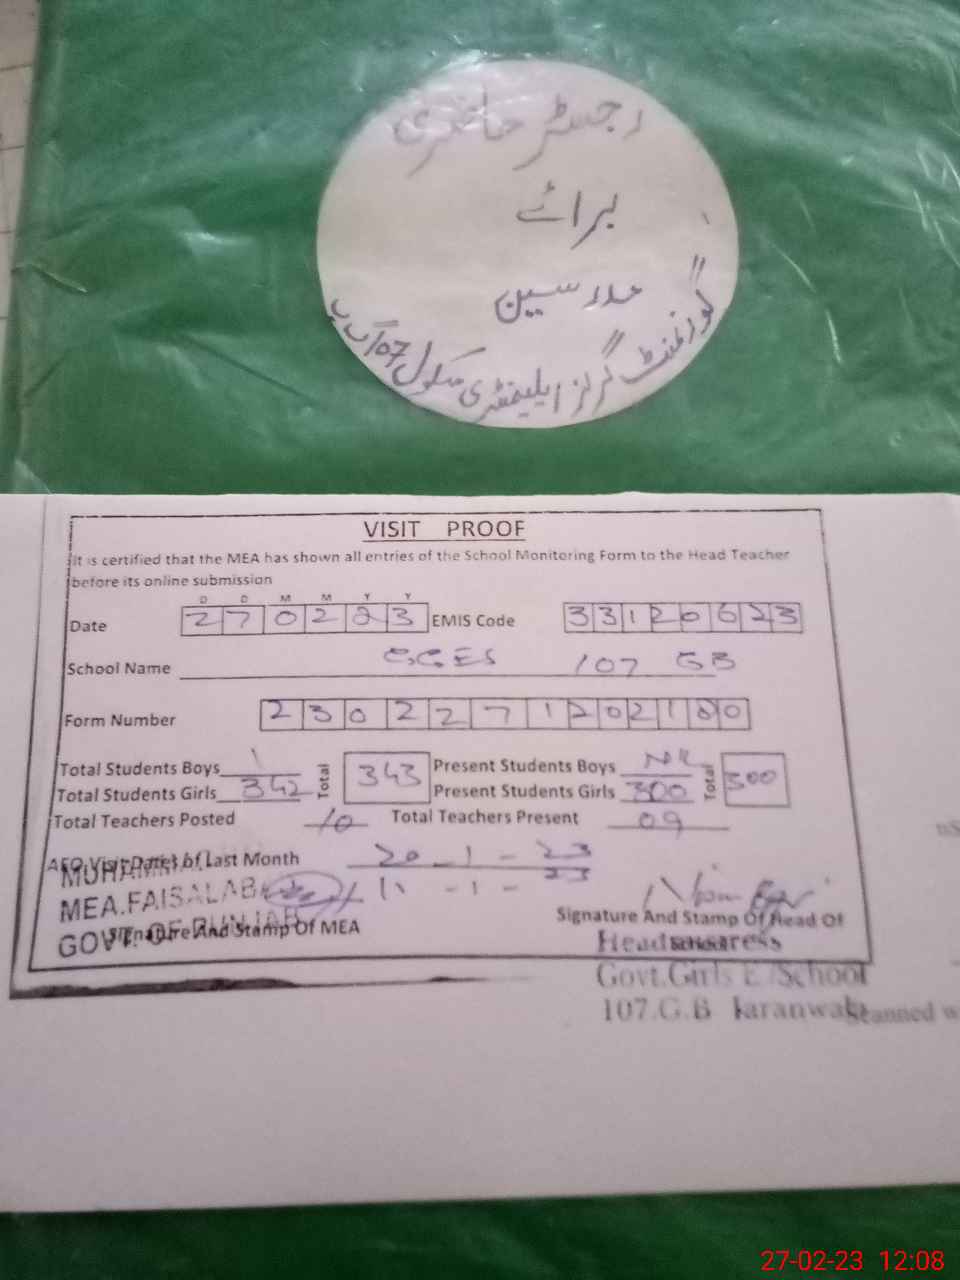 رجسٹر حاضری
برائے
مدرسین
گورنمنٹ گرلز ایلیمنٹری سکول 107 گ ب
VISIT PROOF
It is certified that the MEA has shown all entries of the School Monitoring Form to the Head Teacher
before its online submission
D D M M Y Y
Date 270223 EMIS Code 33120623
School Name G.G.E.S 107 GB
Form Number 2302271202180
Total Students Boys 1 Total 343 Present Students Boys Nil Total 300
Total Students Girls 342 Present Students Girls 300
Total Teachers Posted 10 Total Teachers Present 09
AEO Visit Date(s) of Last Month 20-1-23
11-1-23
MUHAMMAD
MEA.FAISALABAD
GOVT. OF PUNJAB
Signature And Stamp Of MEA
Signature And Stamp Of Head Of
School
Headmistress
Govt.Girls E/School
107.G.B Jaranwala
Scanned w
27-02-23 12:08